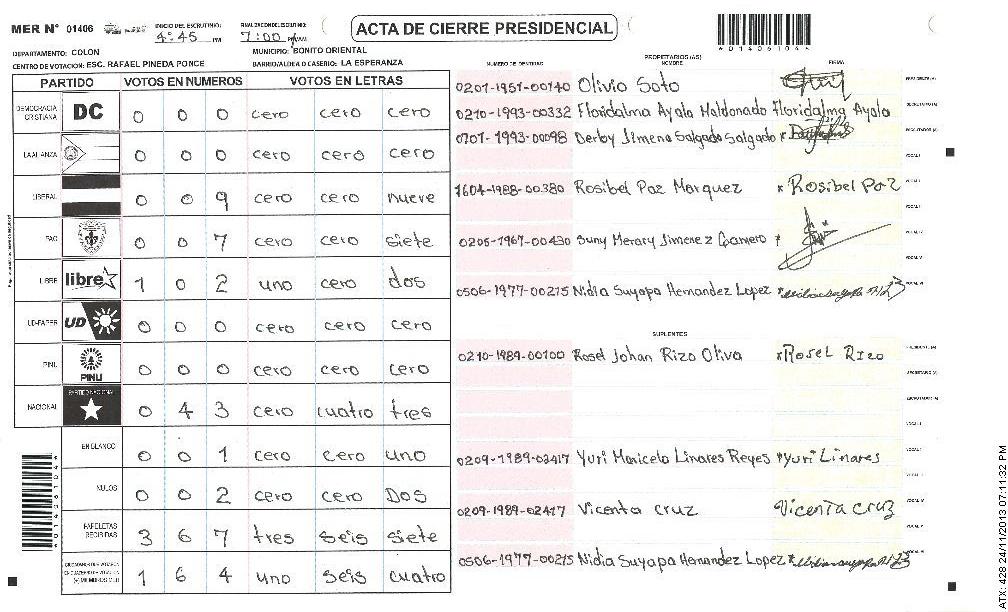 MER N° 01406
INICIO DEL ESCRUTINIO:
4:45 PM
FINALIZACION DEL ESCRUTINIO:
7:00 PM/AM
ACTA DE CIERRE PRESIDENCIAL
DEPARTAMENTO: COLON
MUNICIPIO: BONITO ORIENTAL
CENTRO DE VOTACION: ESC. RAFAEL PINEDA PONCE
BARRIO/ALDEA O CASERIO: LA ESPERANZA
PARTIDO VOTOS EN NUMEROS VOTOS EN LETRAS
DEMOCRACIA CRISTIANA DC 0 0 0 cero cero cero
LA ALIANZA 0 0 0 cero cero cero
LIBERAL 0 0 9 cero cero nueve
PAC 0 0 7 cero cero siete
LIBRE libre 1 0 2 uno cero dos
UD-FAPER UD 0 0 0 cero cero cero
PINU PINU 0 0 0 cero cero cero
NACIONAL PARTIDO NACIONAL 0 4 3 cero cuatro tres
EN BLANCO 0 0 1 cero cero uno
NULOS 0 0 2 cero cero Dos
PAPELETAS RECIBIDAS 3 6 7 tres seis siete
1 6 4 uno seis cuatro
NUMERO DE IDENTIDAD
PROPIETARIOS (AS)
NOMBRE
FIRMA
0201-1951-00140 Olivio Soto
0210-1993-00332 Floridalma Ayala Maldonado Floridalma Ayala
0701-1993-00098 Derby Jimena Salgado Salgado
1604-1988-00380 Rosibel Paz Marquez Rosibel Paz
0205-1967-00430 Suny Merary Jimenez Gamero
0506-1977-00215 Nidia Suyapa Hernandez Lopez
SUPLENTES
0210-1989-00100 Rosel Johan Rizo Oliva Rosel Rizo
0209-1989-02417 Yuri Maricela Linares Reyes Yuri Linares
0209-1989-02417 Vicenta Cruz Vicenta Cruz
0506-1977-00215 Nidia Suyapa Hernandez Lopez
ATX: 428 24/11/2013 07:11:32 PM